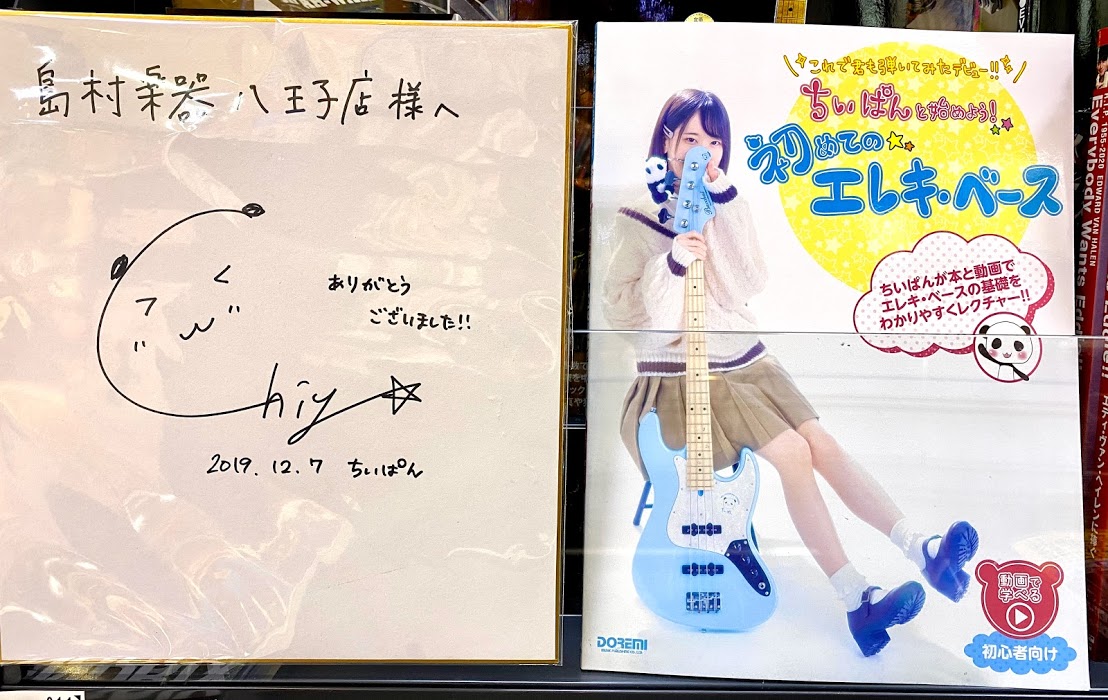 島村楽器 八王子店様へ
ありがとう
ございました!!
chiy
2019.12.7 ちぃぱん
これで君も弾いてみたデビュー!!
ちぃぱんと始めよう!
初めての
エレキ・ベース
ちぃぱんが本と動画で
エレキ・ベースの基礎を
わかりやすくレクチャー!!
動画で
学べる
初心者向け
DOREMI
1955-2020 EDWARD VAN HALEN
Everybody Wants